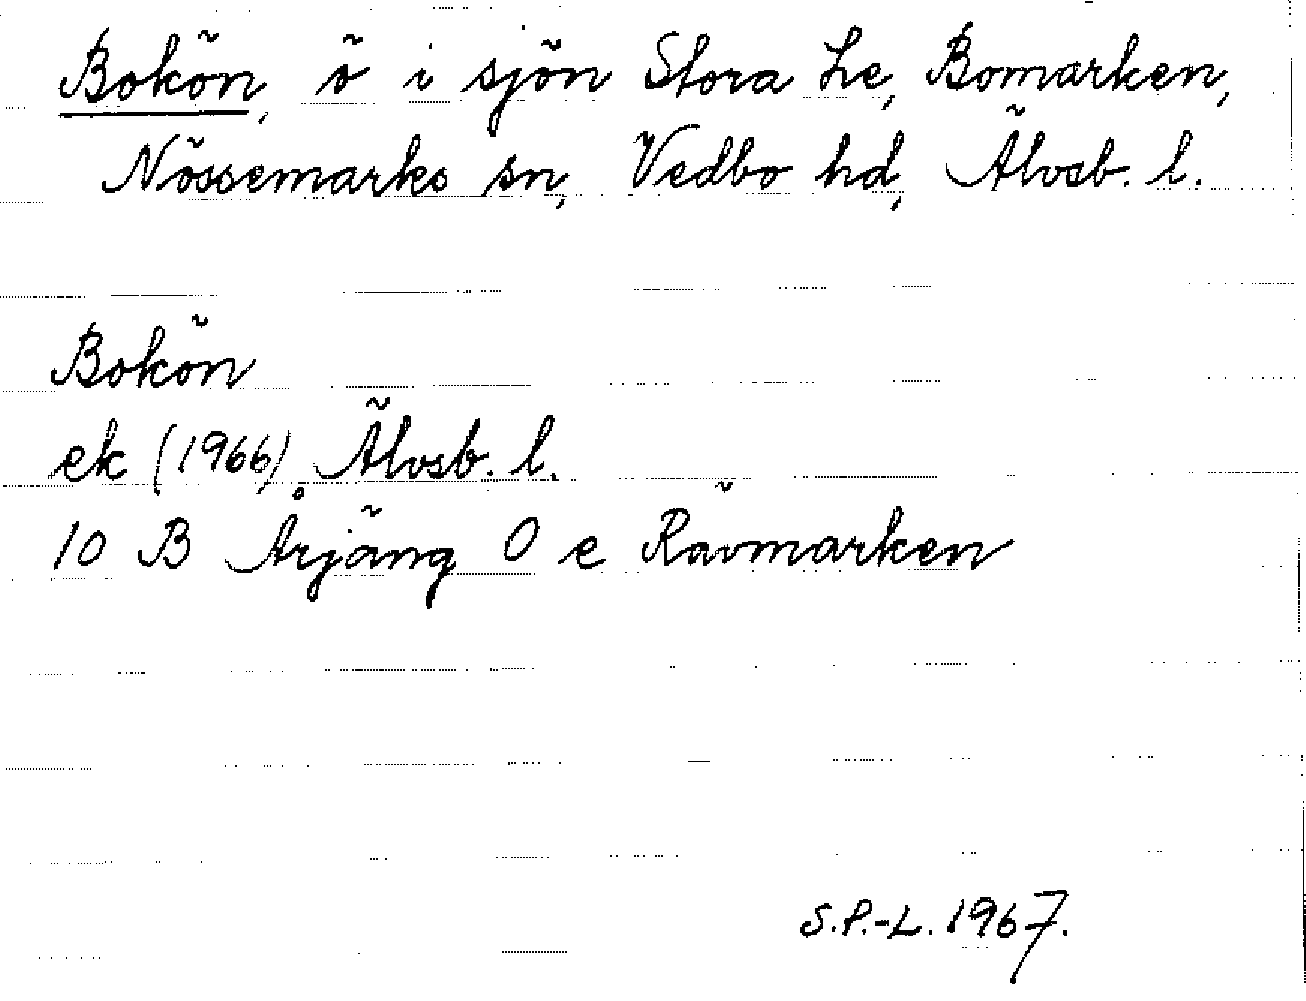 Bokön, ö i sjön Stora Le, Bomarken,
Nössemarks sn, Vedbo hd, Älvsb. l.
Bokön
ek (1966) Älvsb. l.
10 B Årjäng 0 e Rävmarken
S.P.-L. 1967.